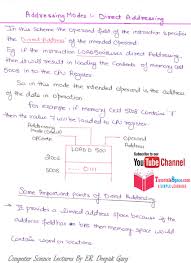 Addressing Modes :- Direct Addressing
In this Scheme the operand field of the instruction specifies
the Direct Address of the intended operand.
Eg. if the instruction LOAD 500 uses direct Addressing,
then it will result in loading the contents of memory cell
500 into the CPU Register
So in this mode the intended operand is the address
of the data in operation.
For example, if memory cell 500 contains 7
then the value 7 will be loaded to CPU Register
Operand
Address
500
Subscribe to our
YouTube Channel
TutorialsSpace.com
SIMPLE LEARNING
Some Important points of Direct Addressing
It provides a limited address space because if the
address field has bits then memory space would
Computer Science Lectures By ER. Deepak Garg